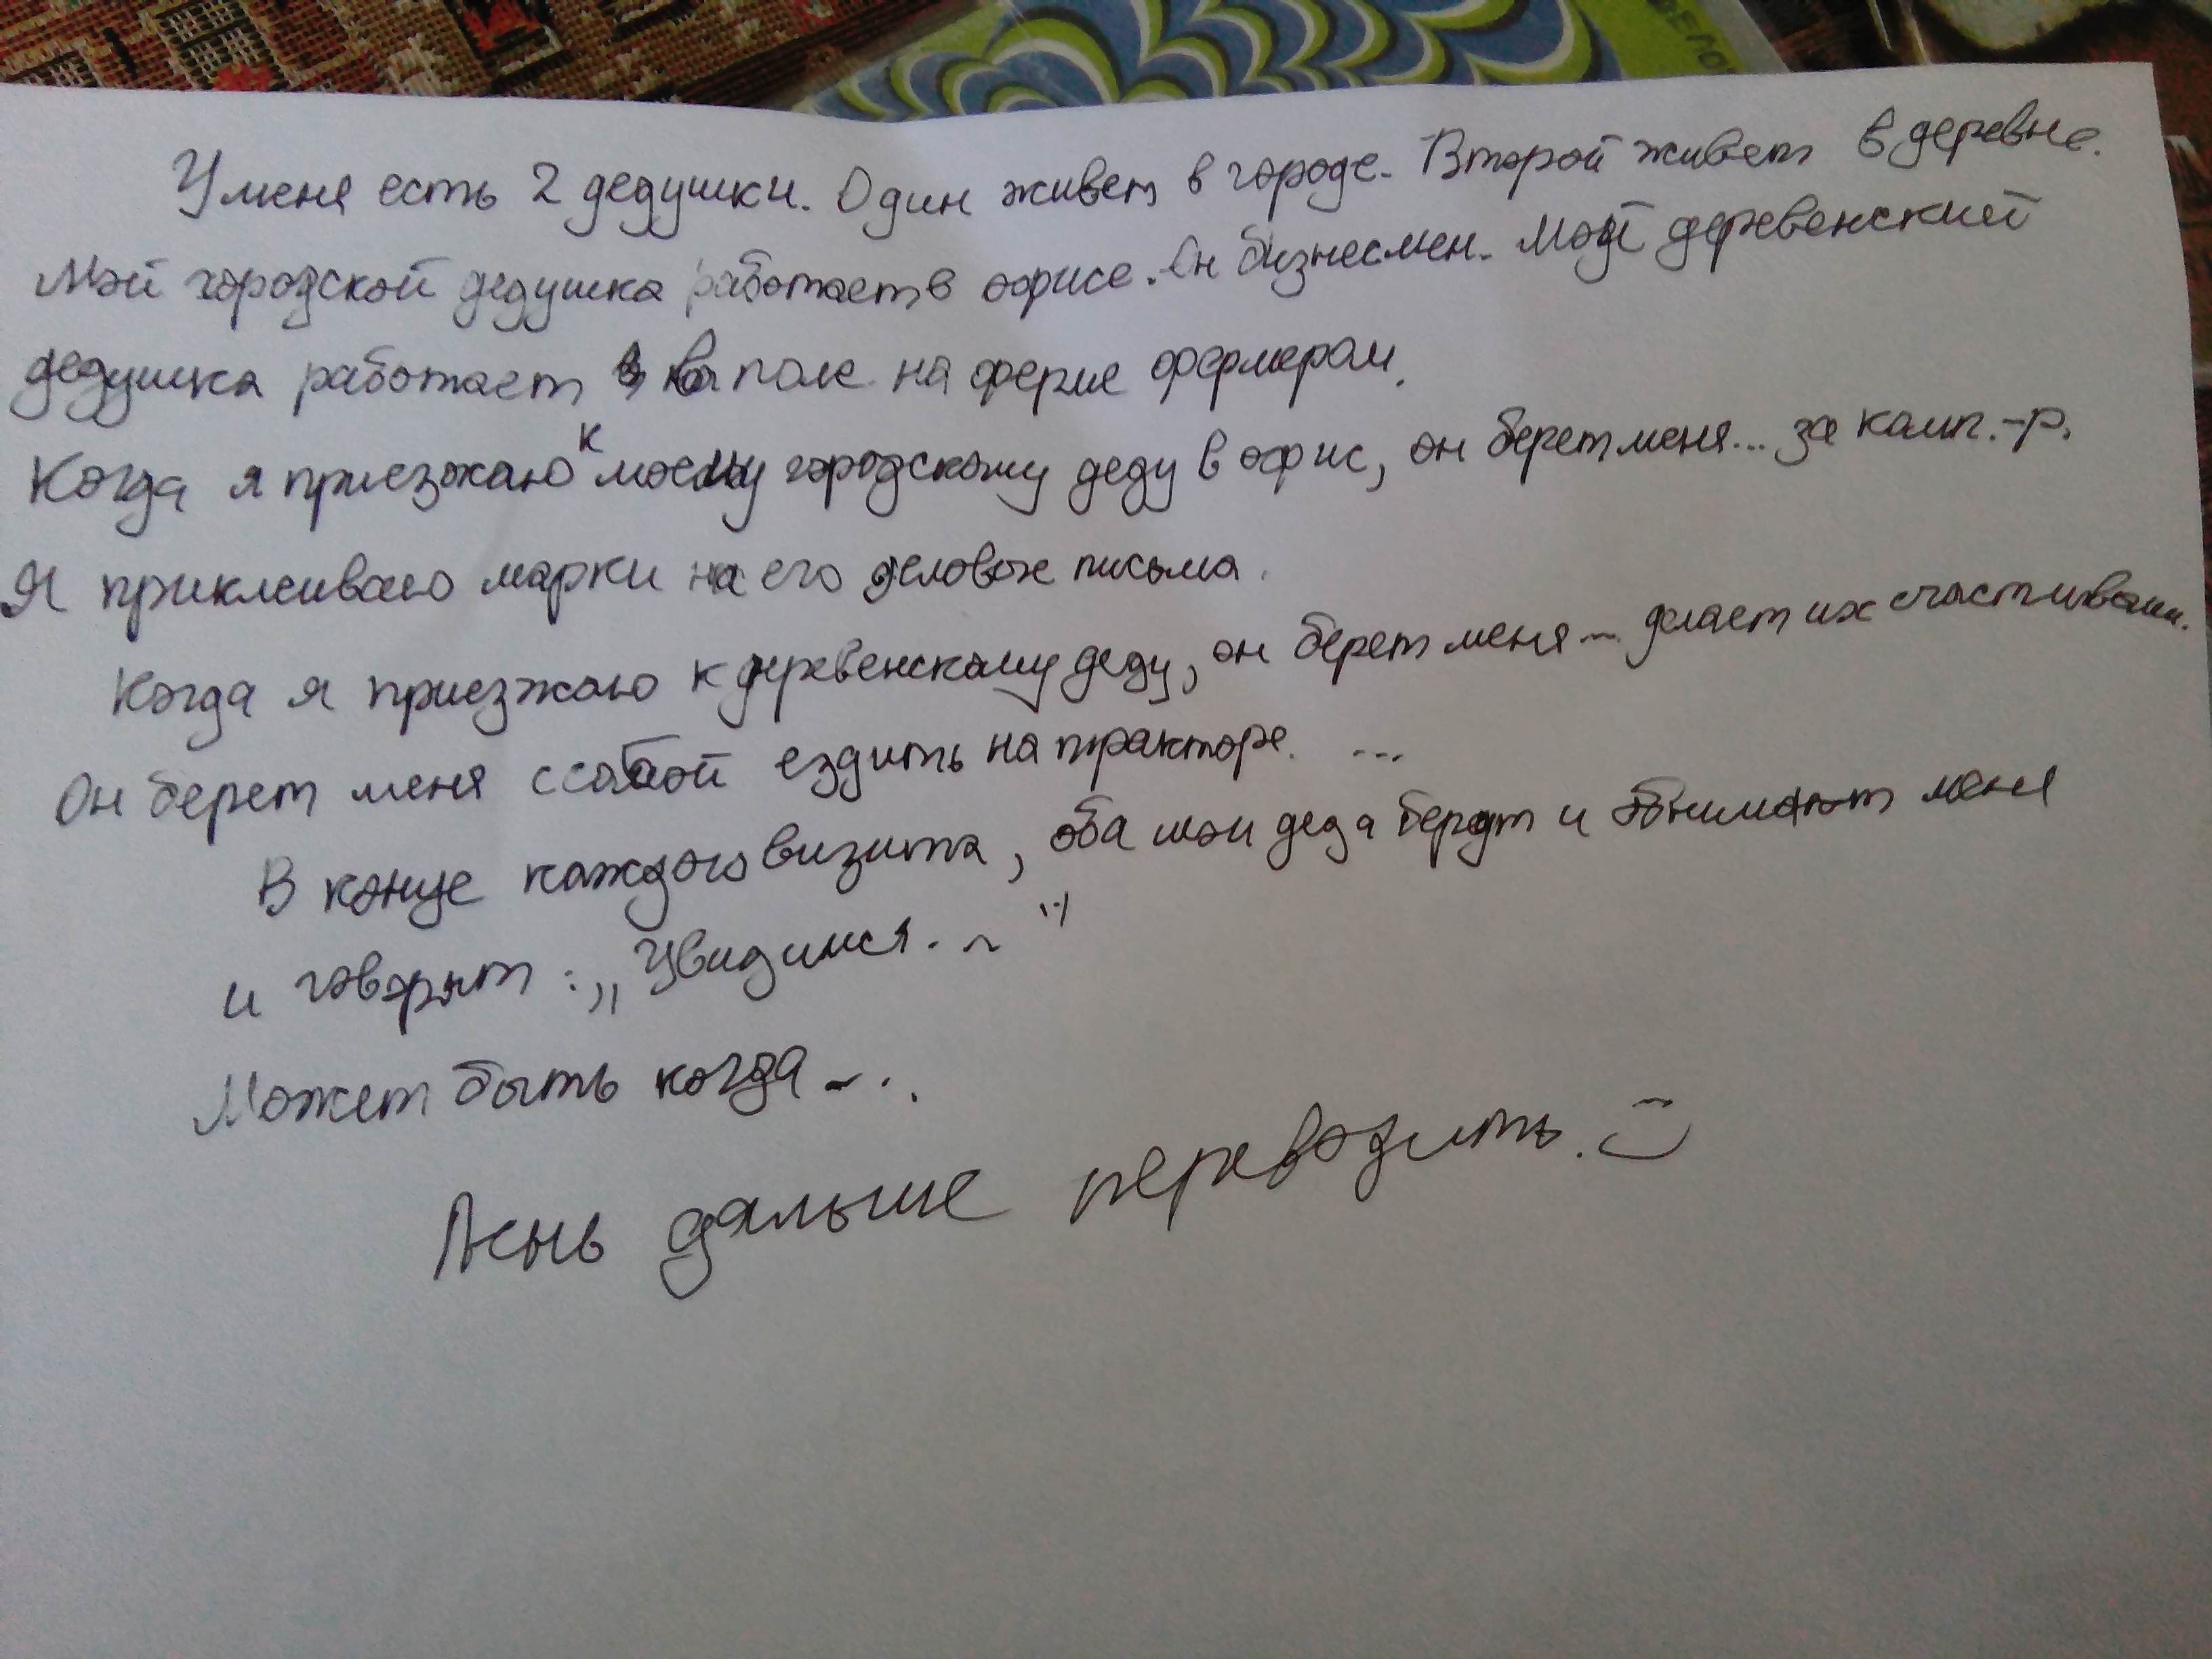 У меня есть 2 дедушки. Один живет в городе. Второй живет в деревне.
Мой городской дедушка работает в офисе. Он бизнесмен. Мой деревенский
дедушка работает в поле на ферме фермером.
Когда я приезжаю к моему городскому деду в офис, он берет меня... за комп.-р.
Я приклеиваю марки на его деловые письма.
Когда я приезжаю к деревенскому деду, он берет меня... делает их счастливыми.
Он берет меня с собой ездить на тракторе. ...
В конце каждого визита, оба мои деда берут и обнимают меня
и говорят: „Увидимся..."
Может быть когда...
Лень дальше переводить. :)